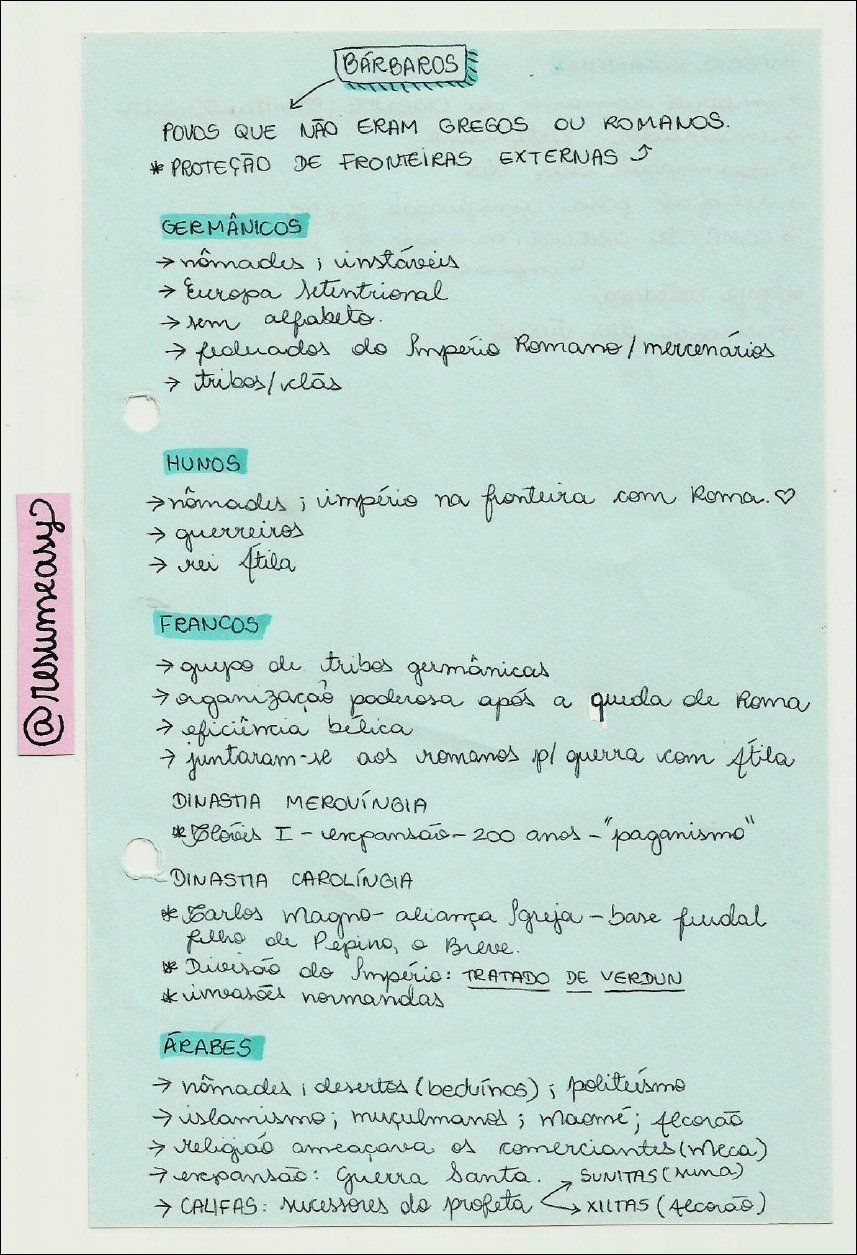 BÁRBAROS
POVOS QUE NÃO ERAM GREGOS OU ROMANOS.
* PROTEÇÃO DE FRONTEIRAS EXTERNAS ⤴
GERMÂNICOS
→ nômades ; instáveis
→ Europa Setentrional
→ sem alfabeto.
→ federados do Império Romano / mercenários
→ tribos/clãs
HUNOS
→ nômades ; império na fronteira com Roma. ♡
→ guerreiros
→ rei Átila
@resumeasy
FRANCOS
→ grupo de tribos germânicas
→ organização poderosa após a queda de Roma
→ eficiência bélica
→ juntaram-se aos romanos p/ guerra com Átila
DINASTIA MEROVÍNGIA
* Clóvis I - expansão - 200 anos - "paganismo"
DINASTIA CAROLÍNGIA
* Carlos Magno - aliança Igreja - base feudal
filho de Pepino, o Breve.
* Divisão do Império: TRATADO DE VERDUN
* invasões normandas
ÁRABES
→ nômades ; desertos (beduínos) ; politeísmo
→ islamismo ; muçulmanos ; Maomé ; Alcorão
→ religião ameaçava os comerciantes (Meca)
→ expansão: Guerra Santa. SUNITAS (suna)
→ CALIFAS: sucessores do profeta XIITAS (Alcorão)